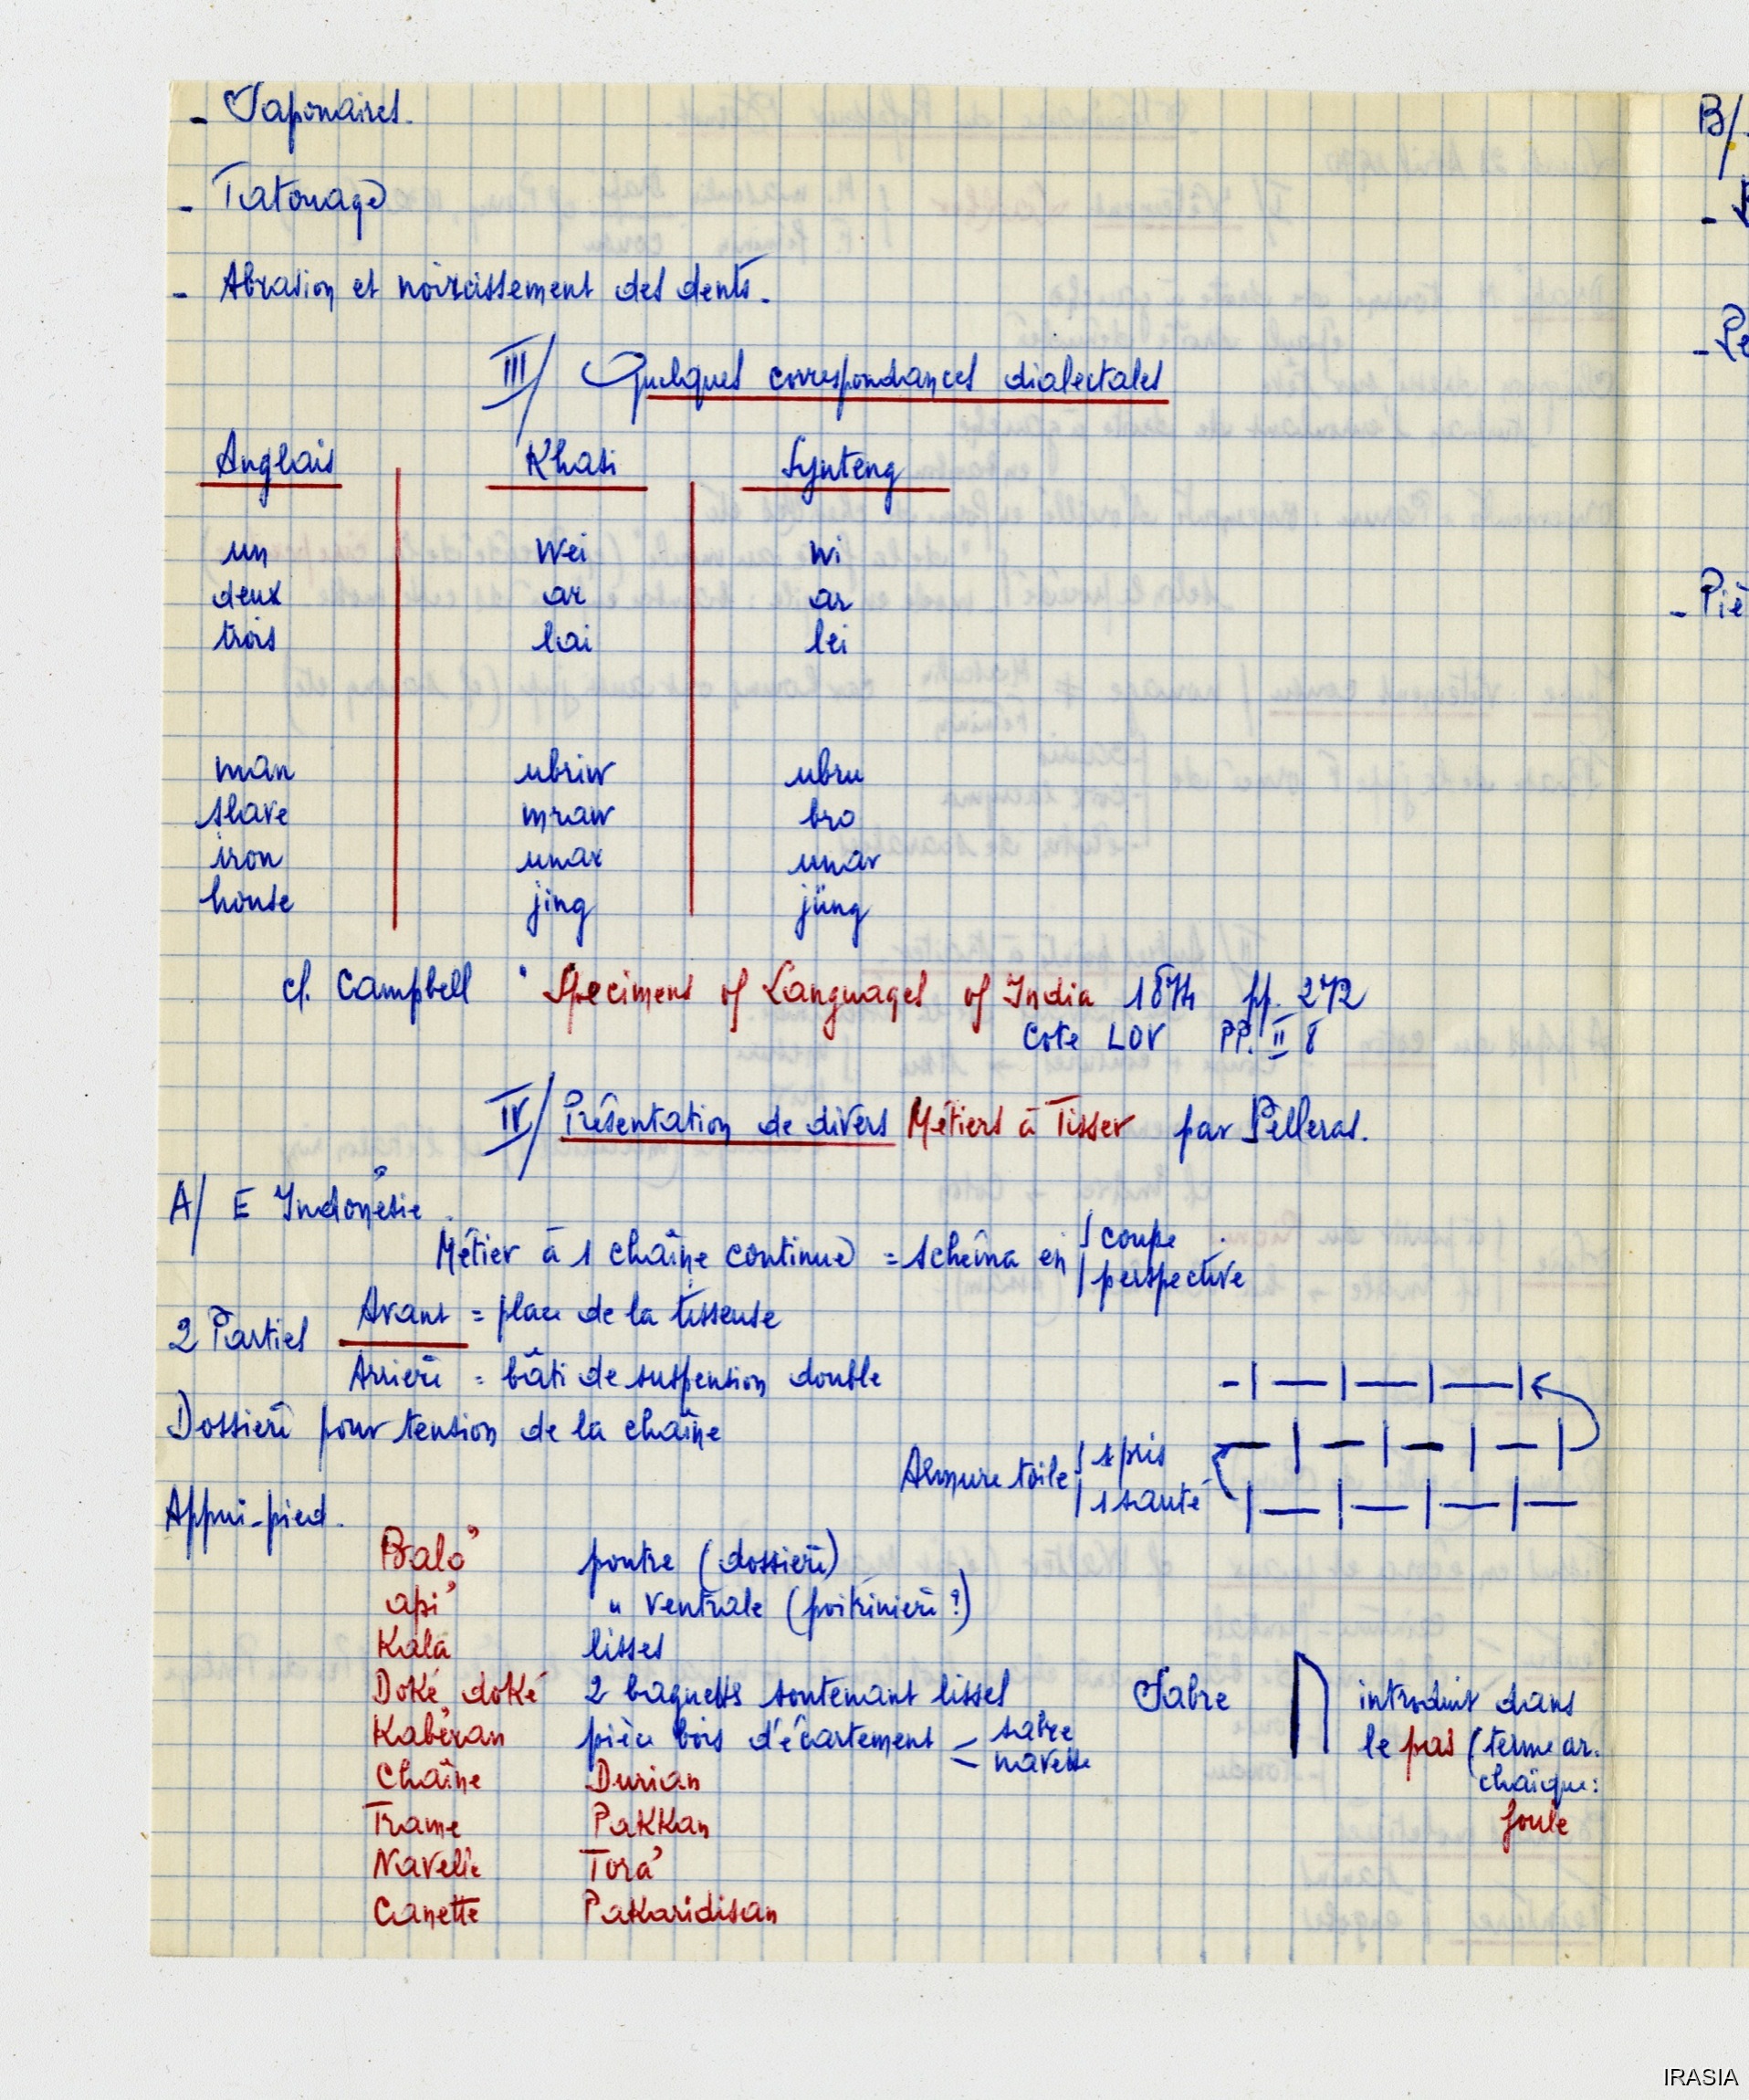 - Saponaires.
- Tatouage
- Abrasion et noircissement des dents.
III/ Quelques correspondances dialectales
Anglais Khasi Synteng
un Wei wi
deux ar ar
trois lai lei
man ubriw ubru
slave mraw bro
iron unar unar
house jing jüng
cf. Campbell " Specimens of Languages of India 1874 pp. 272
Cote LOV PP. II 8
IV/ Présentation de divers Métiers à Tisser par Pelleras.
A/ E Indonésie
Métier à 1 chaîne continue = schéma en coupe
perspective
2 Parties Avant = place de la tisseuse
Arrière = bâti de suspension double
Dossière pour tension de la chaîne
Armure toile 1 pris
1 sauté
Appui-pied.
Balo' poutre (dossière)
api' " ventrale (poitrinière ?)
Kala lisses
Doké doké 2 baguettes soutenant lisses
Kabéran pièce bois d'écartement sabre
navette
Sabre introduit dans
le pas (terme ar-
chaïque:
foule
Chaîne Durian
Trame Pakkan
Navette Tora'
Canette Pakaridisan
B/
- Pe
- Piè
IRASIA